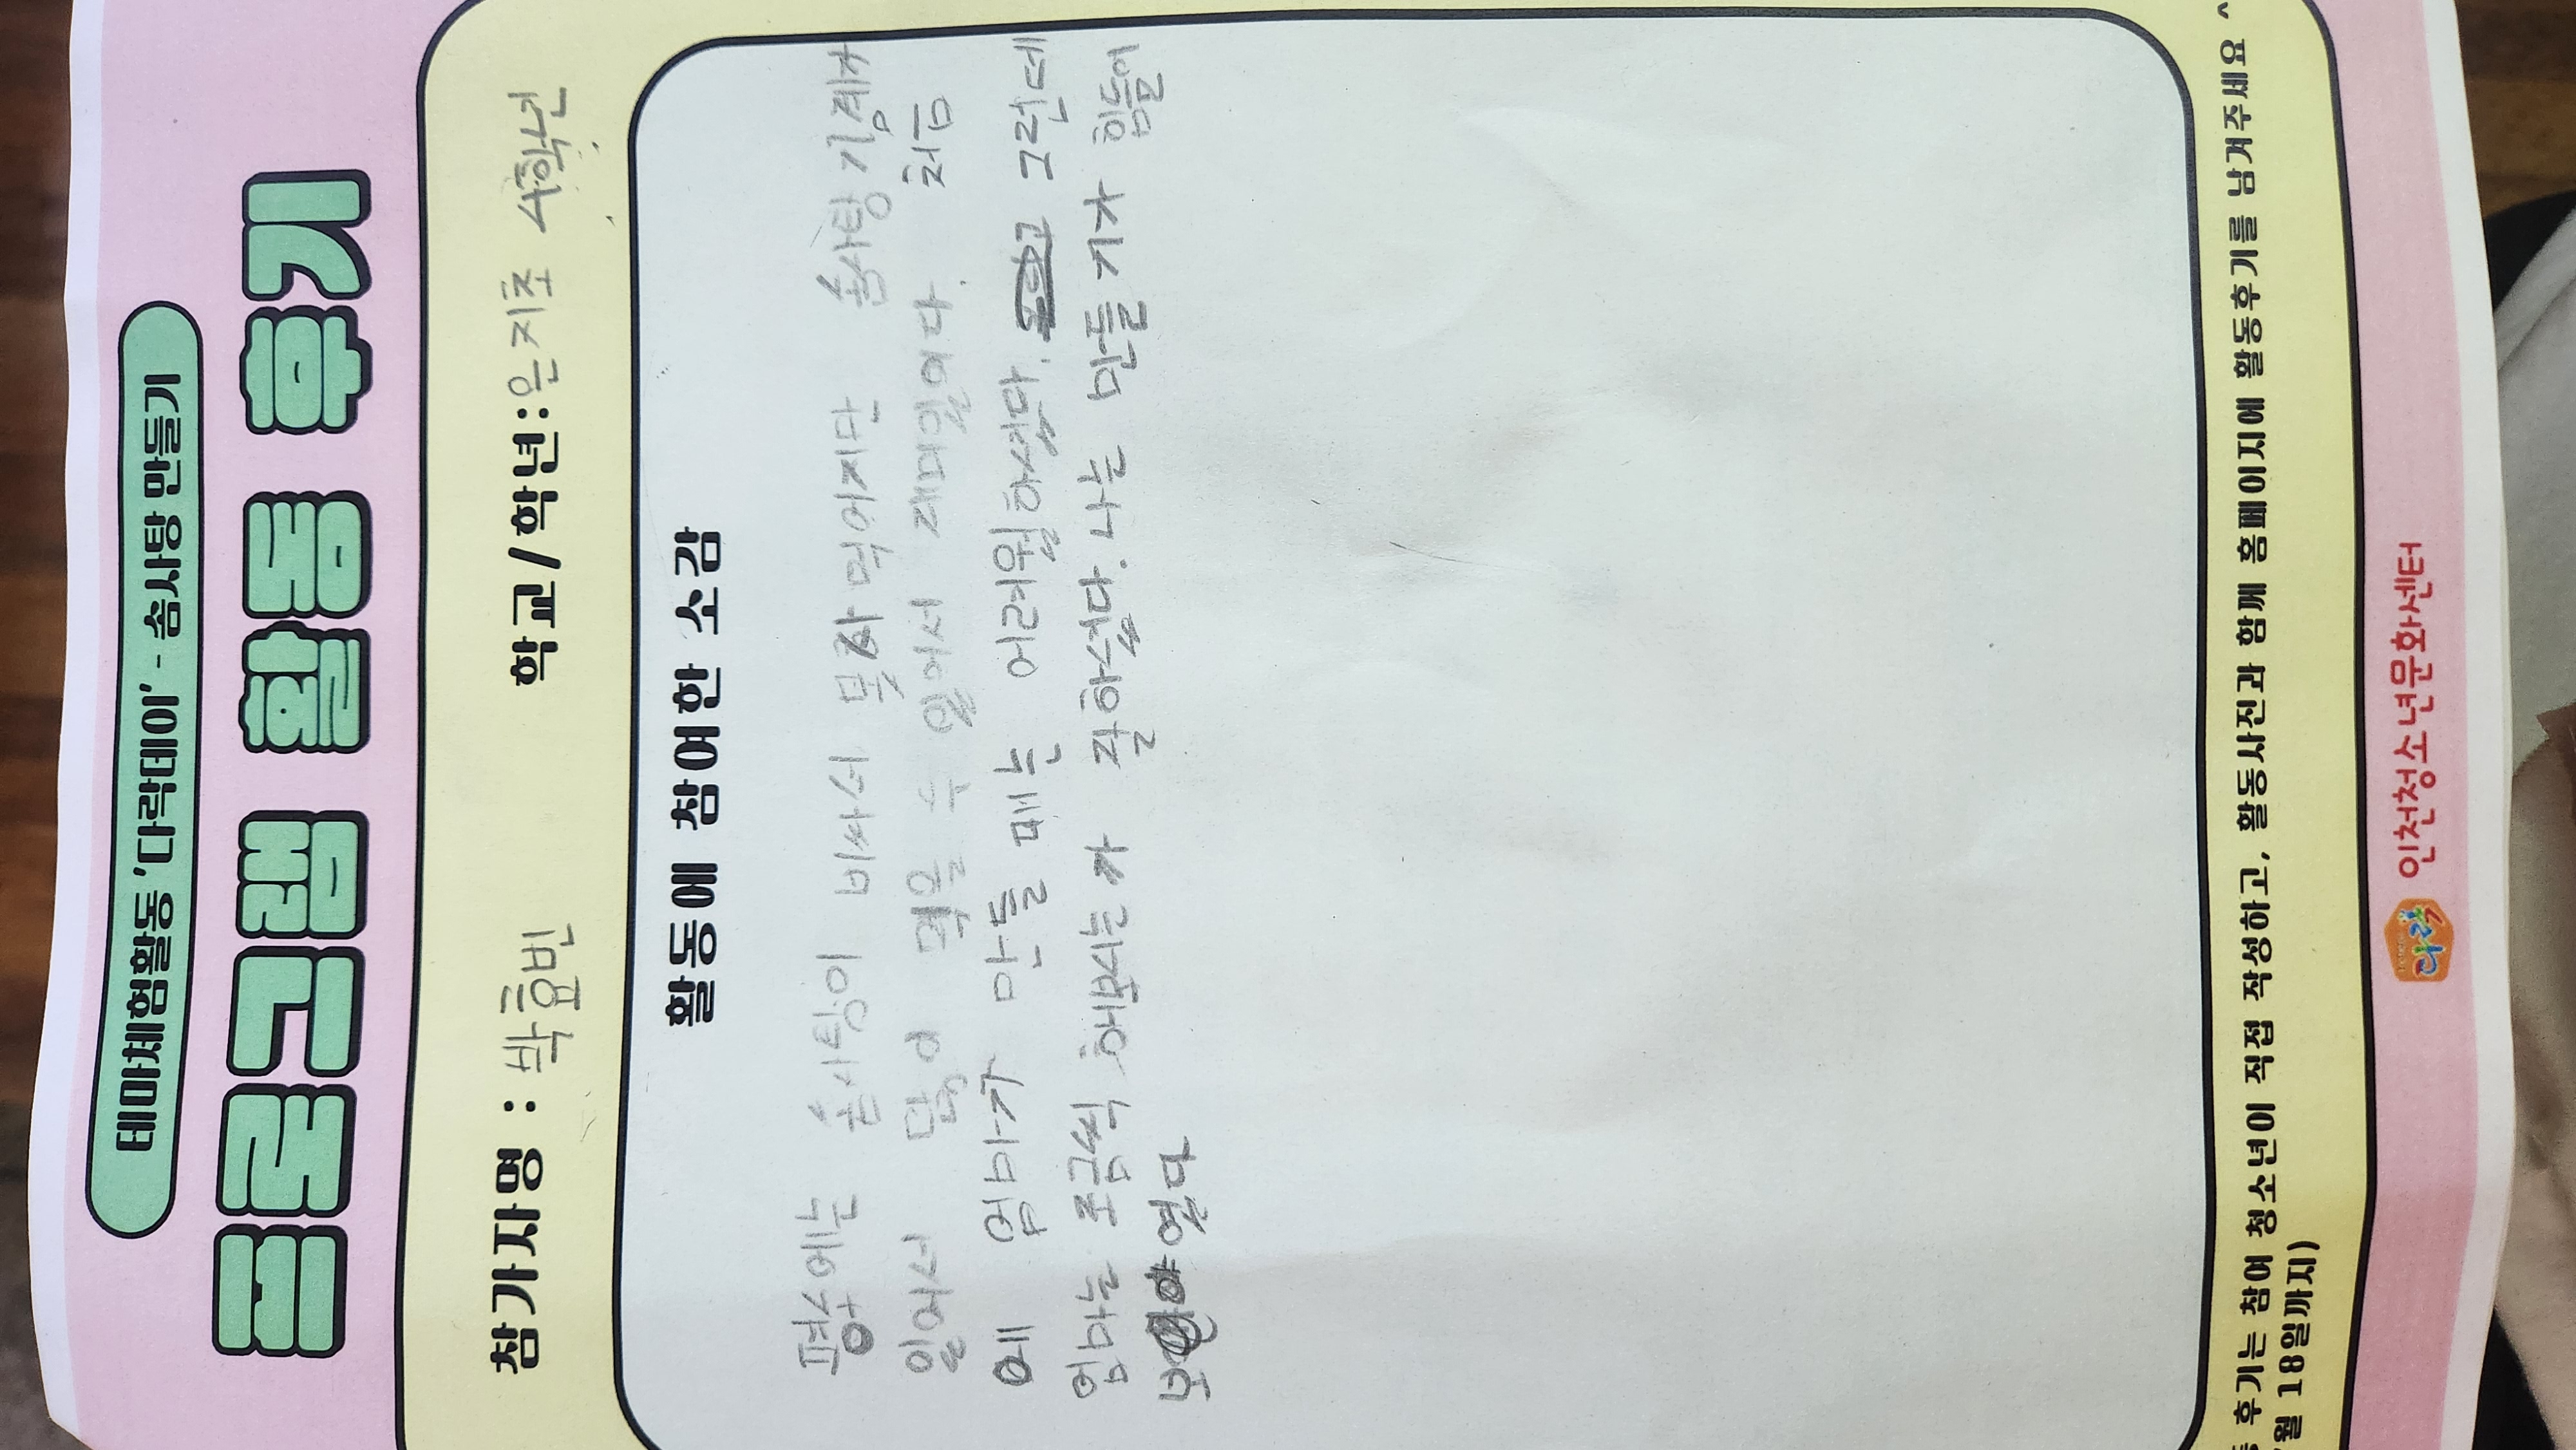 테마체험활동 '다락데이' - 솜사탕 만들기
프로그램 활동 후기
참가자명 : 박효빈 학교/학년: 은지초 4학년
활동에 참여한 소감
평소에는 솜사탕이 비싸서 못 사먹어지만 솜사탕 기계가
있어서 많이 먹을 수 있어서 재미있었다. 처음
에 엄마가 만들 때는 어려워하셨다. 그런데
엄마는 조금씩 해보시는가 잘하셨다. 나는 만들기가 힘들어
보였다
후기는 참여 청소년이 직접 작성하고, 활동사진과 함께 홈페이지에 활동후기를 남겨주세요 ^
월 18일까지)
다락 인천청소년문화센터